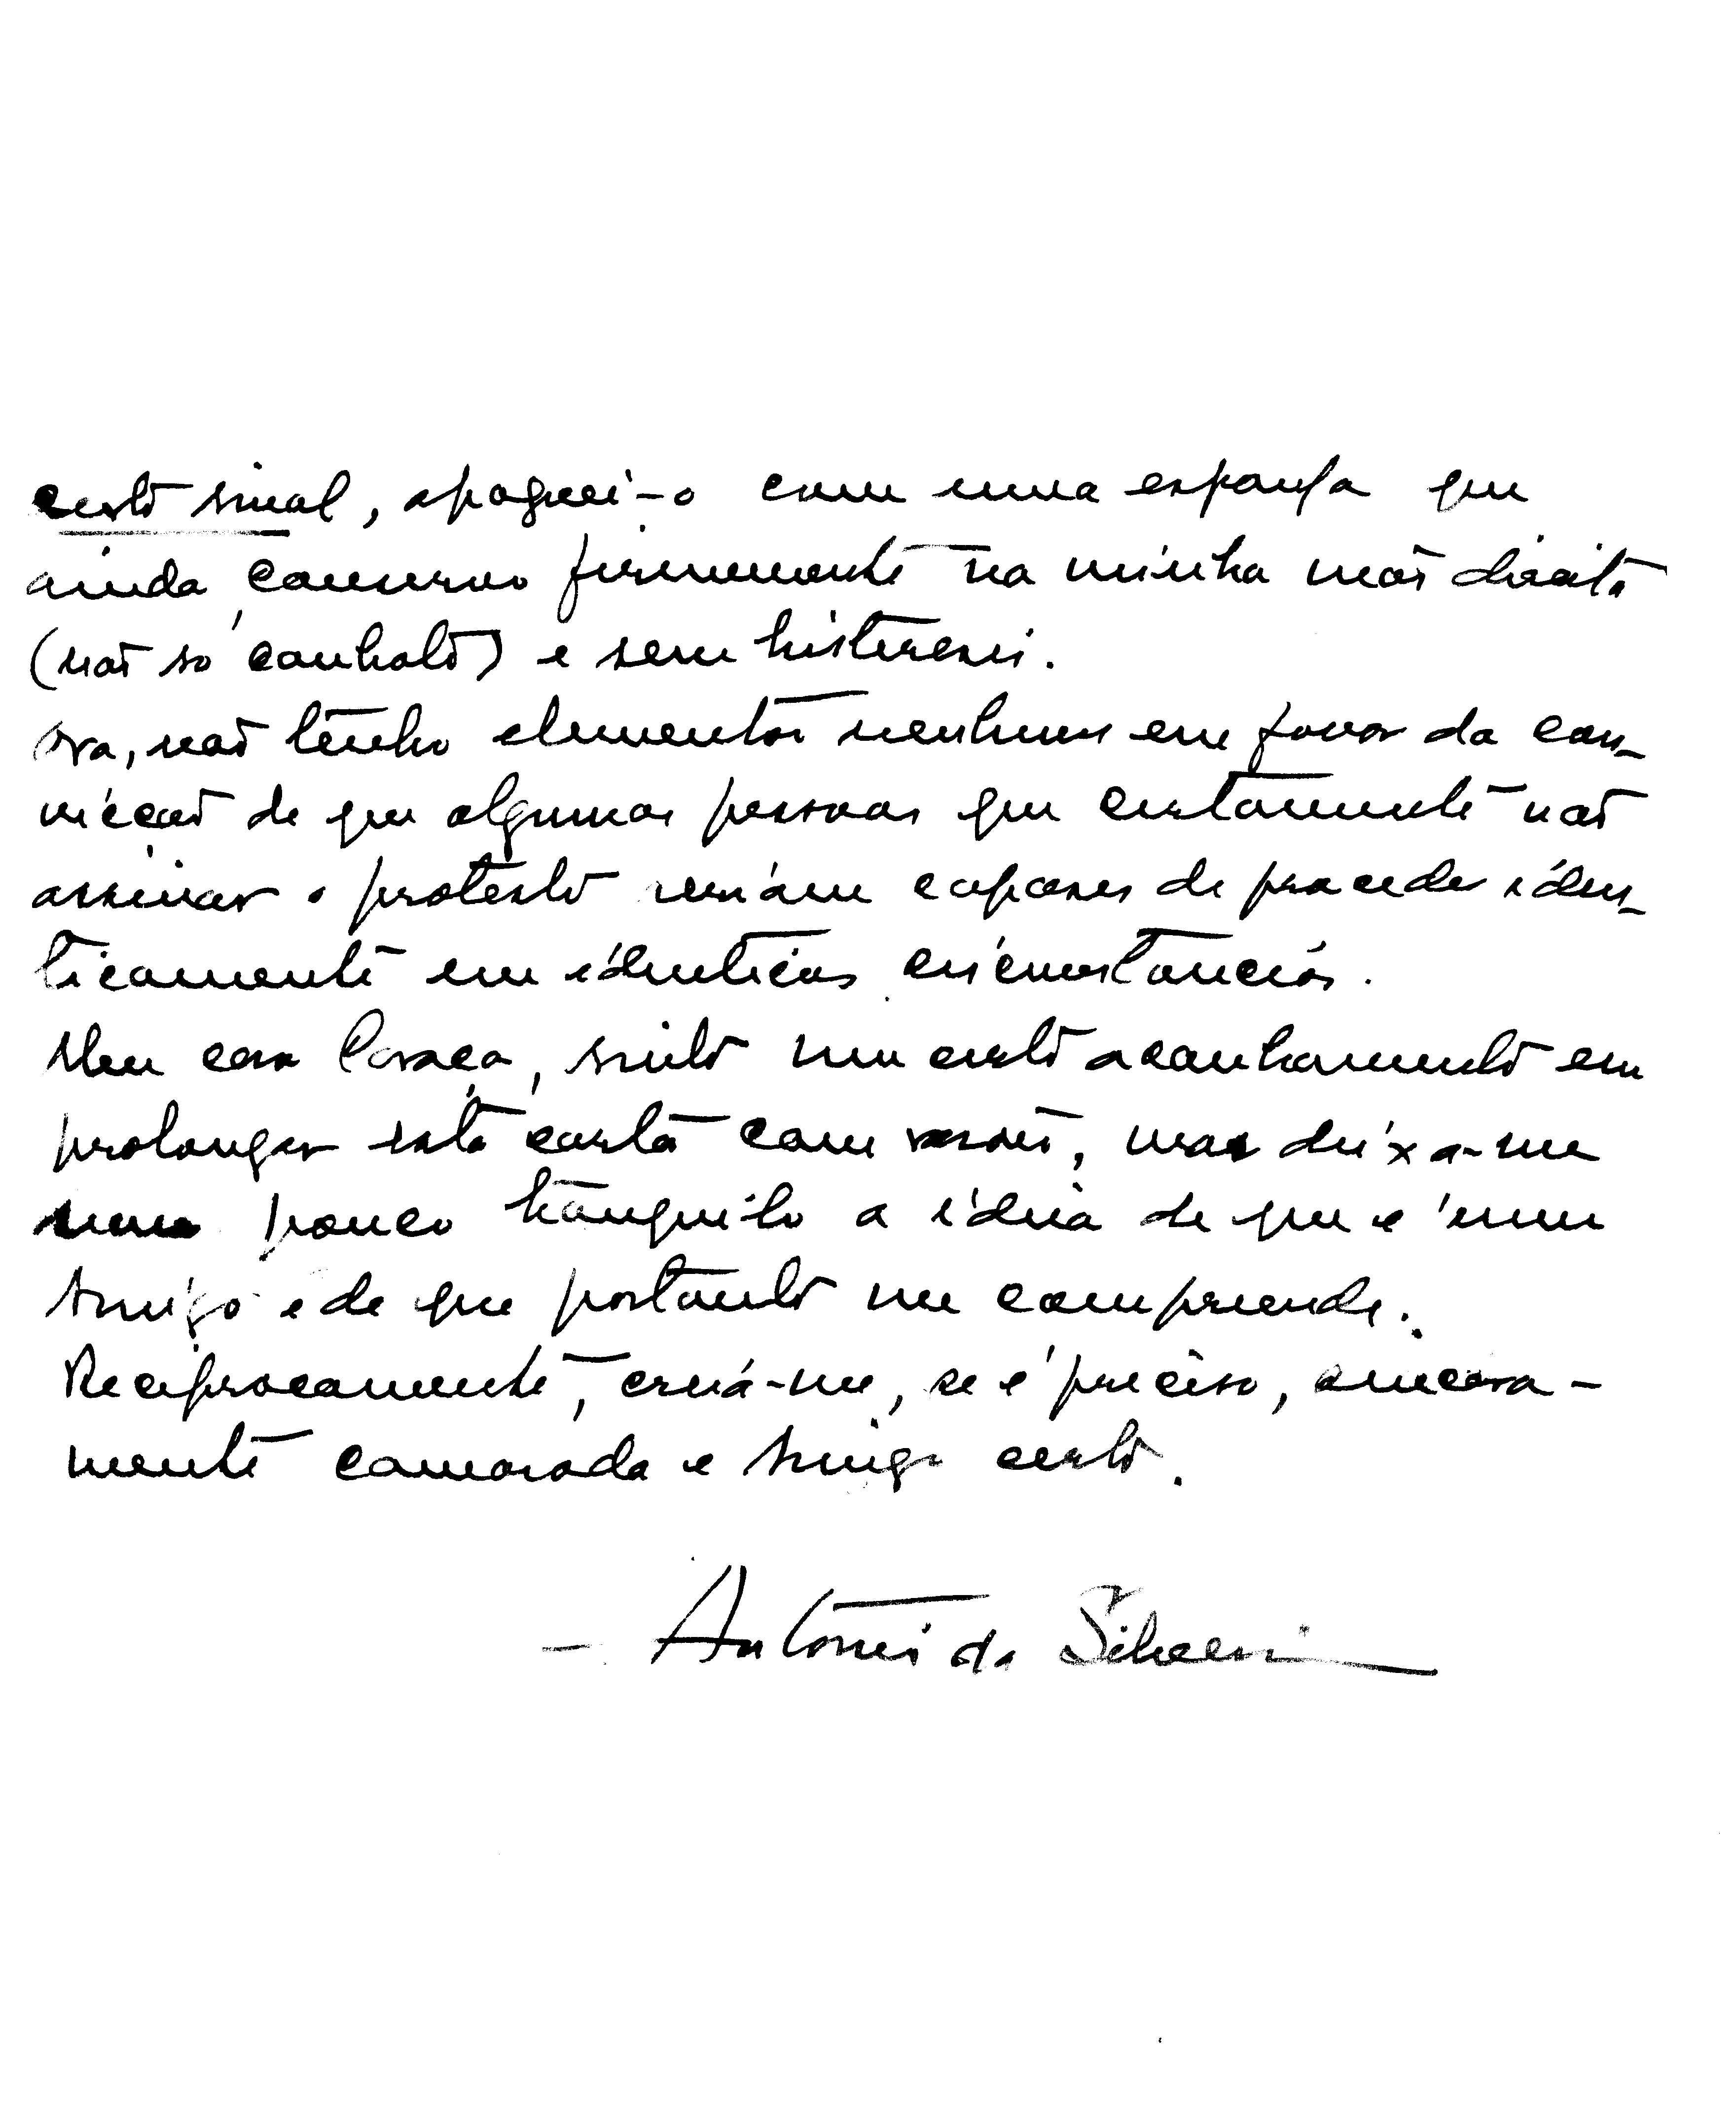 certo sinal, apaguei-o com uma esponja que
ainda conservo firmemente na minha mão direita
(não sou canhoto) e sem histeresis.
Ora, não tenho elementos nenhuns em favor da con-
vicção de que algumas pessoas que certamente vão
assinar o protesto seriam capazes de proceder iden-
ticamente em idênticas circunstâncias.
Meu caro Caraça, sinto um certo acanhamento em
prolongar esta carta com, mas deixa-me
um pouco tranquilo a ideia de que é meu
Amigo e de que portanto me compreende.
Reciprocamente, creia-me, se é preciso, sincera-
mente camarada e Amigo certo.
- António da Silveira